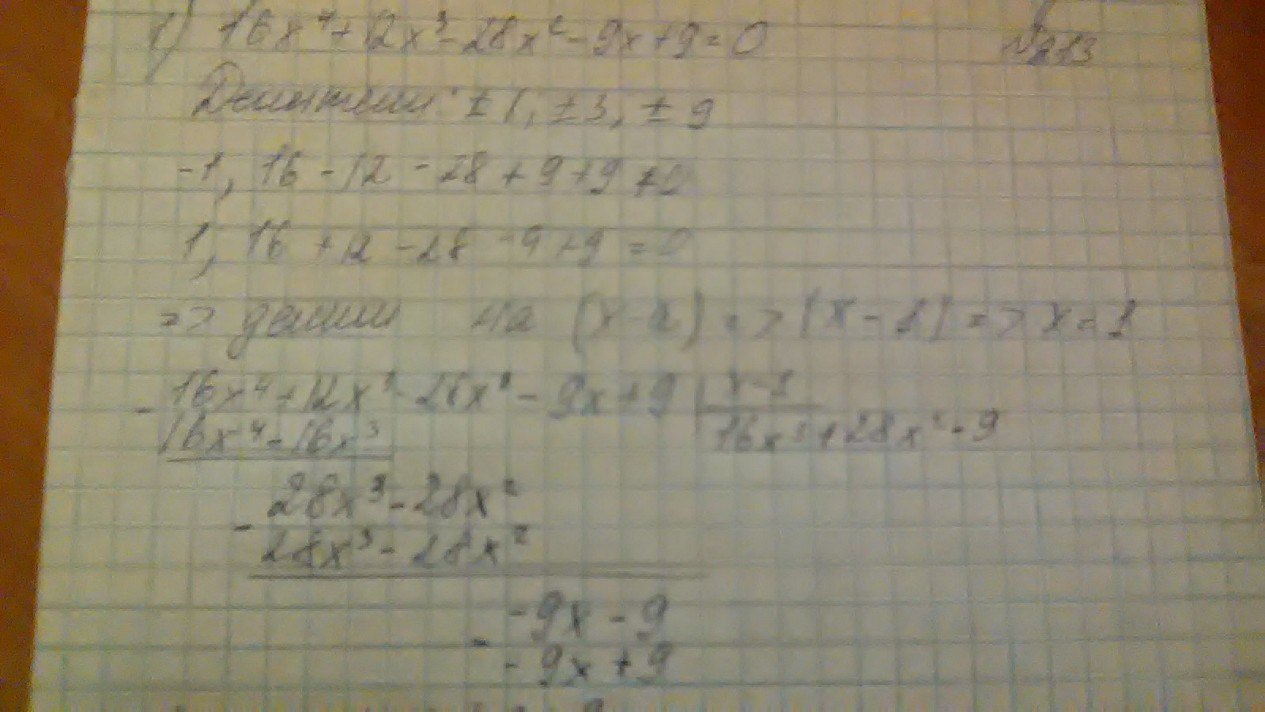 1) 16x⁴+12x³-28x²-9x+9=0 №213
Делители: ±1, ±3, ±9
-1, 16-12-28+9+9≠0
1, 16+12-28-9+9=0
=> делим на (x-a) => (x-1) => x=1
- 16x⁴+12x³-28x²-9x+9 | x-1
16x⁴-16x³ 16x³+28x²-9
- 28x³-28x²
28x³-28x²
- -9x-9
-9x+9